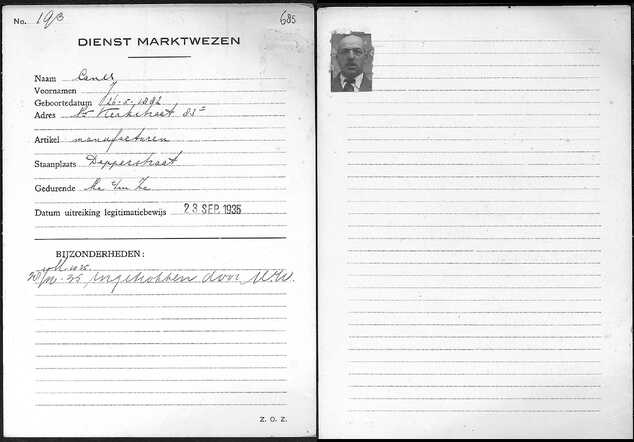 No. 19/3
685
DIENST MARKTWEZEN
Naam
Voornamen J
Geboortedatum 16-5-1892
Adres Kerkstraat 83
Artikel manufacturen
Staanplaats Dapperstraat
Gedurende Ma t/m Za
Datum uitreiking legitimatiebewijs 23 SEP. 1935
BIJZONDERHEDEN:
ingetrokken door M.W.
Z. O. Z.